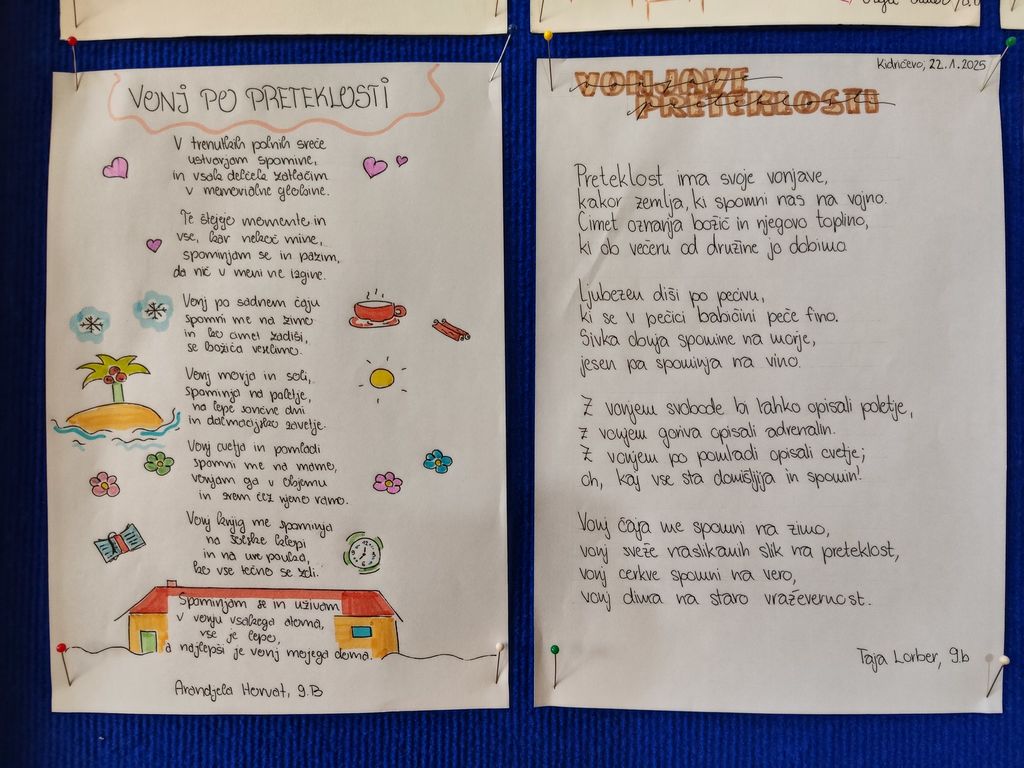 VONJ PO PRETEKLOSTI
V trenutkih polnih sreče
ustvarjam spomine,
in vsak delček zatlačim
v memorialne globine.
Te štejejo momente in
vse, kar nekoč mine,
spominjam se in pazim,
da nič v meni ne izgine.
Vonj po sadnem čaju
spomni me na zimo
in ko cimet zadiši,
se božiča veselimo.
Vonj morja in soli,
spominja na poletje,
na lepe sončne dni
in dalmacijsko zavetje.
Vonj cvetja in pomladi
spomni me na mamo,
vonjam ga v objemu
in zrem čez njeno ramo.
Vonj knjig me spominja
na šolske klopi
in na ure pouka,
ko vse tečno se zdi.
Spominjam se in uživam
v vonju vsakega atoma,
vse je lepo,
a najlepši je vonj mojega doma.
Arandjela Horvat, 9.B
Kidričevo, 22.1.2025
VONJAVE
PRETEKLOSTI
Preteklost ima svoje vonjave,
kakor zemlja, ki spomni nas na vojno.
Cimet oznanja božič in njegovo toplino,
ki ob večeru od družine jo dobimo.
Ljubezen diši po pecivu,
ki se v pečici babičini peče fino.
Sivka obuja spomine na morje,
jesen pa spominja na vino.
Z vonjem svobode bi lahko opisali poletje,
z vonjem goriva opisali adrenalin.
Z vonjem po pomladi opisali cvetje;
oh, kaj vse sta domišljija in spomin!
Vonj čaja me spomni na zimo,
vonj sveže naslikanih slik na preteklost,
vonj cerkve spomni na vero,
vonj dima na staro vraževernost.
Taja Lorber, 9.b